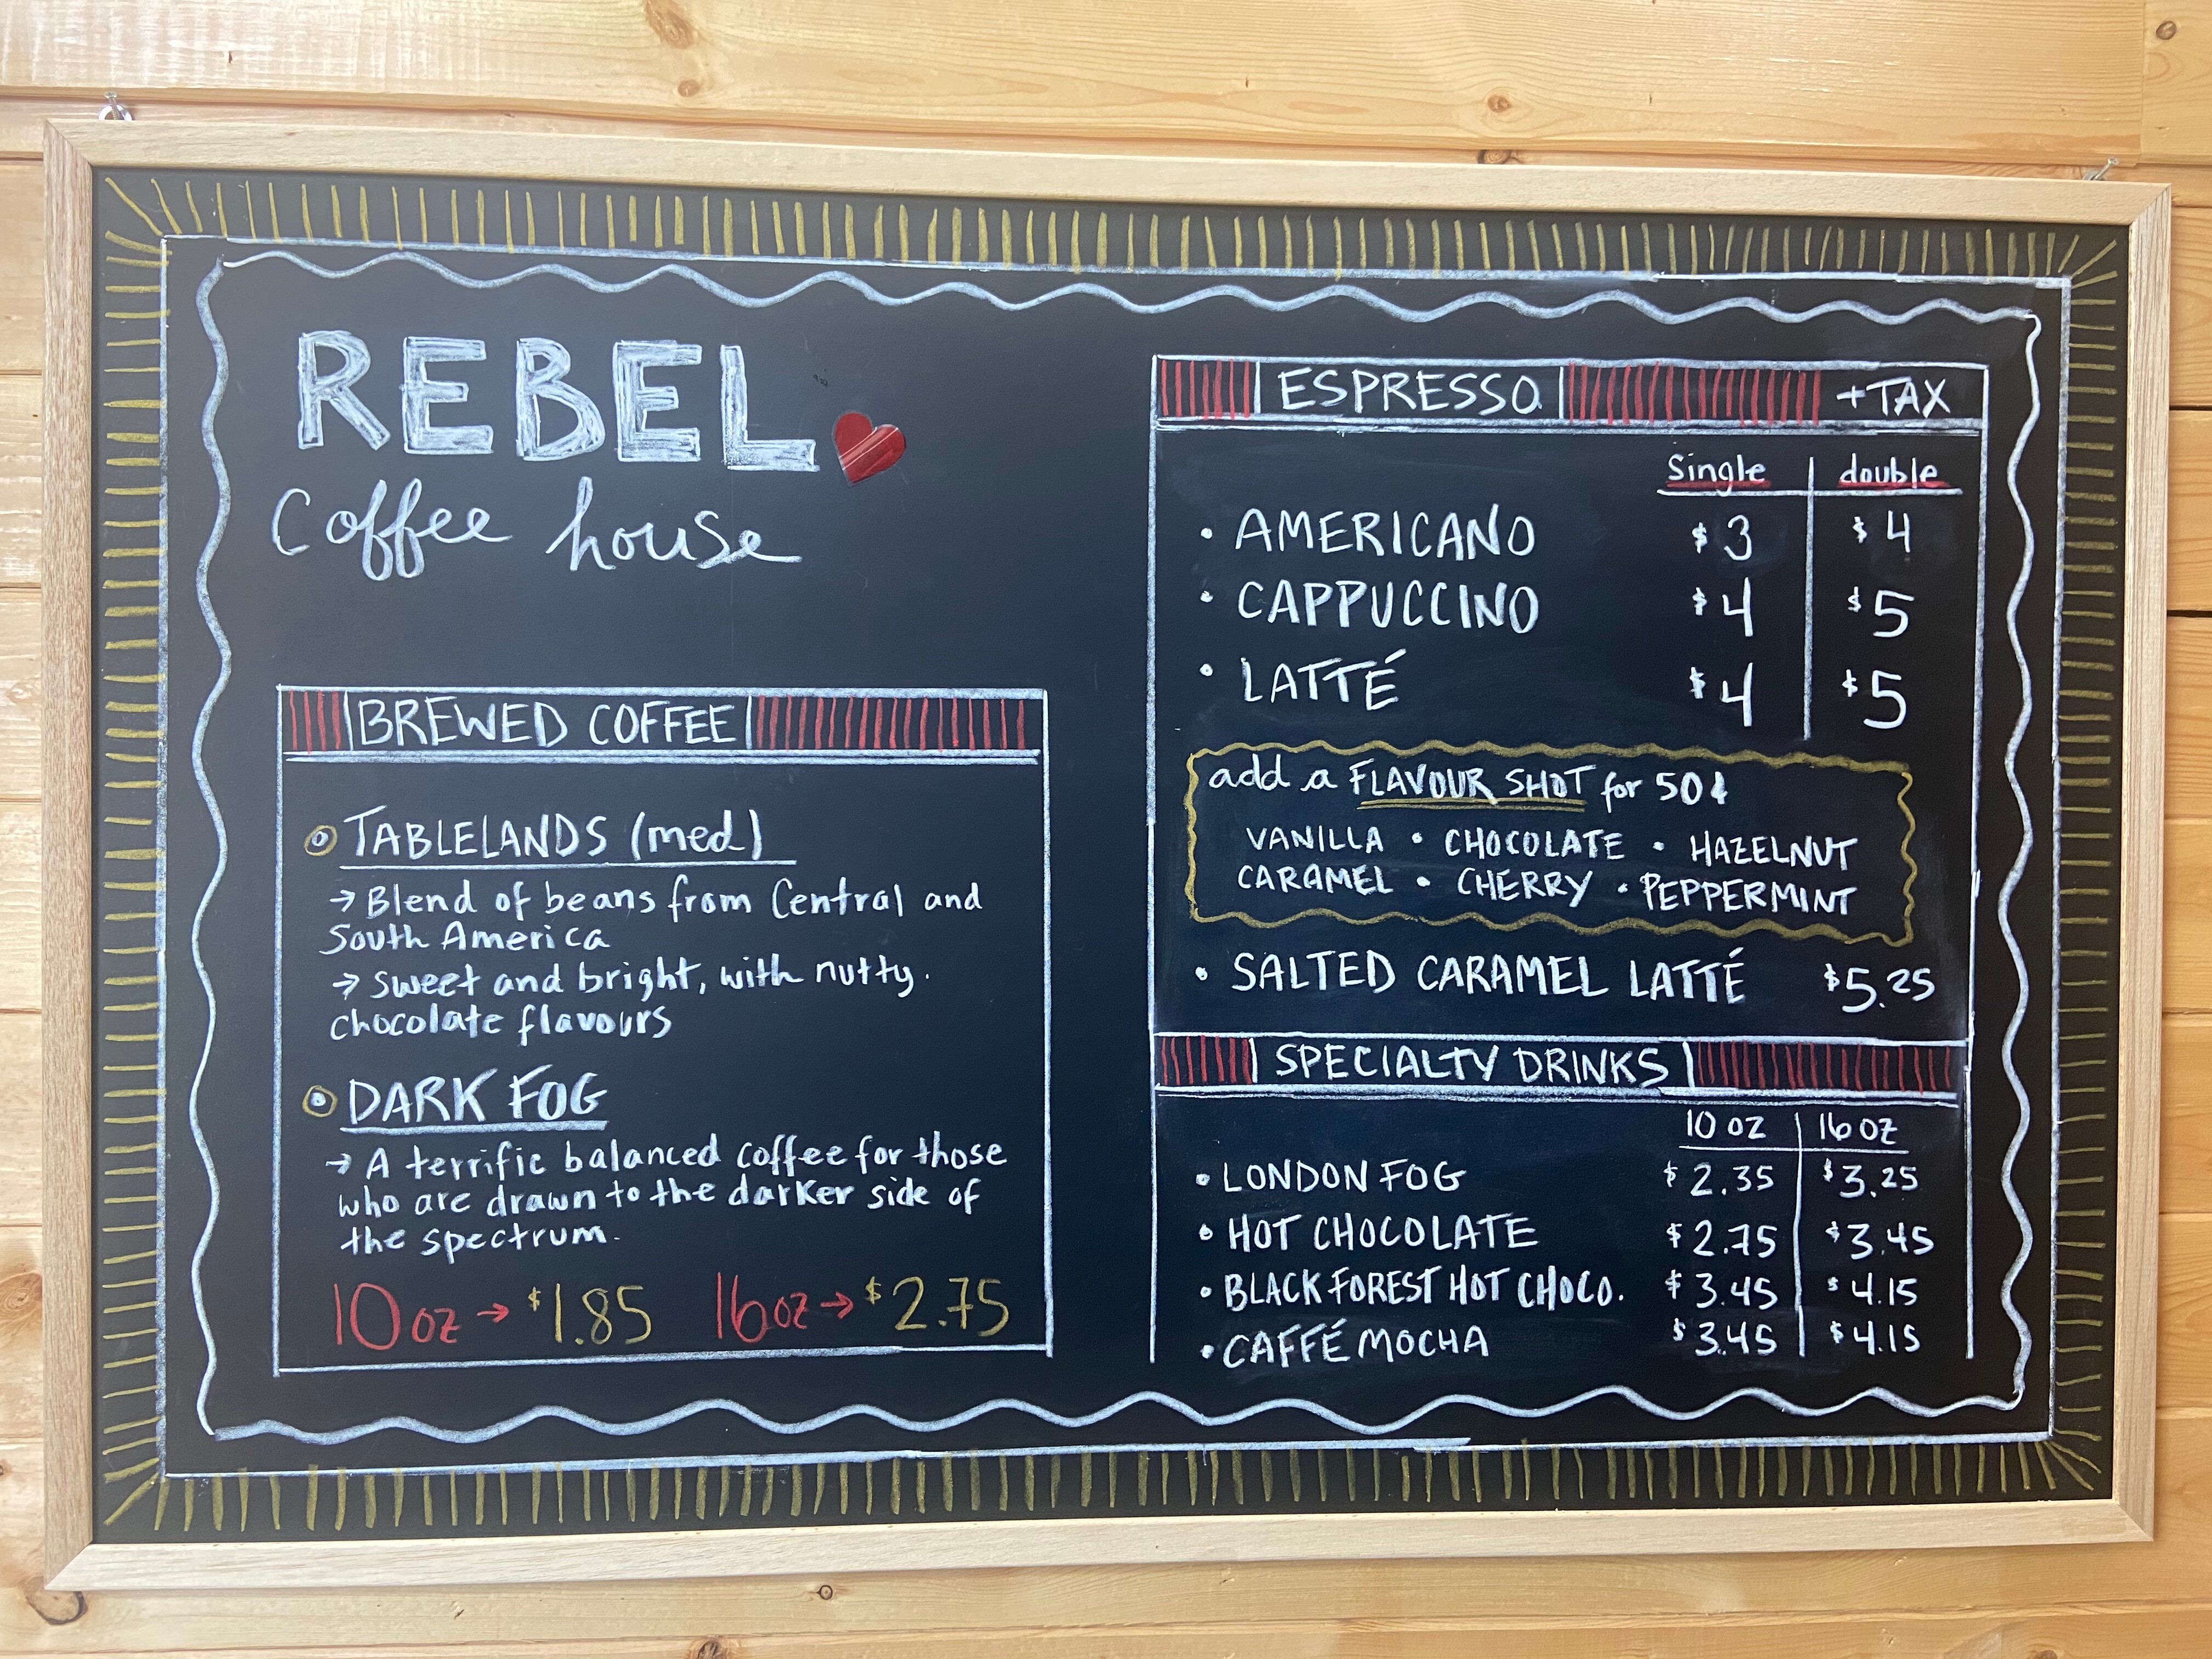 REBEL
Coffee house
BREWED COFFEE
TABLELANDS (med)
→ Blend of beans from Central and
South America
→ sweet and bright, with nutty.
chocolate flavours
DARK FOG
→ A terrific balanced coffee for those
who are drawn to the darker side of
the spectrum.
10 oz → $1.85 16 oz → $2.75
ESPRESSO +TAX
Single double
• AMERICANO $3 $4
• CAPPUCCINO $4 $5
• LATTÉ $4 $5
add a FLAVOUR SHOT for 50¢
VANILLA • CHOCOLATE • HAZELNUT
CARAMEL • CHERRY • PEPPERMINT
• SALTED CARAMEL LATTÉ $5.25
SPECIALTY DRINKS
10 oz 16 oz
• LONDON FOG $2.35 $3.25
• HOT CHOCOLATE $2.75 $3.45
• BLACK FOREST HOT CHOCO. $3.45 $4.15
• CAFFÉ MOCHA $3.45 $4.15